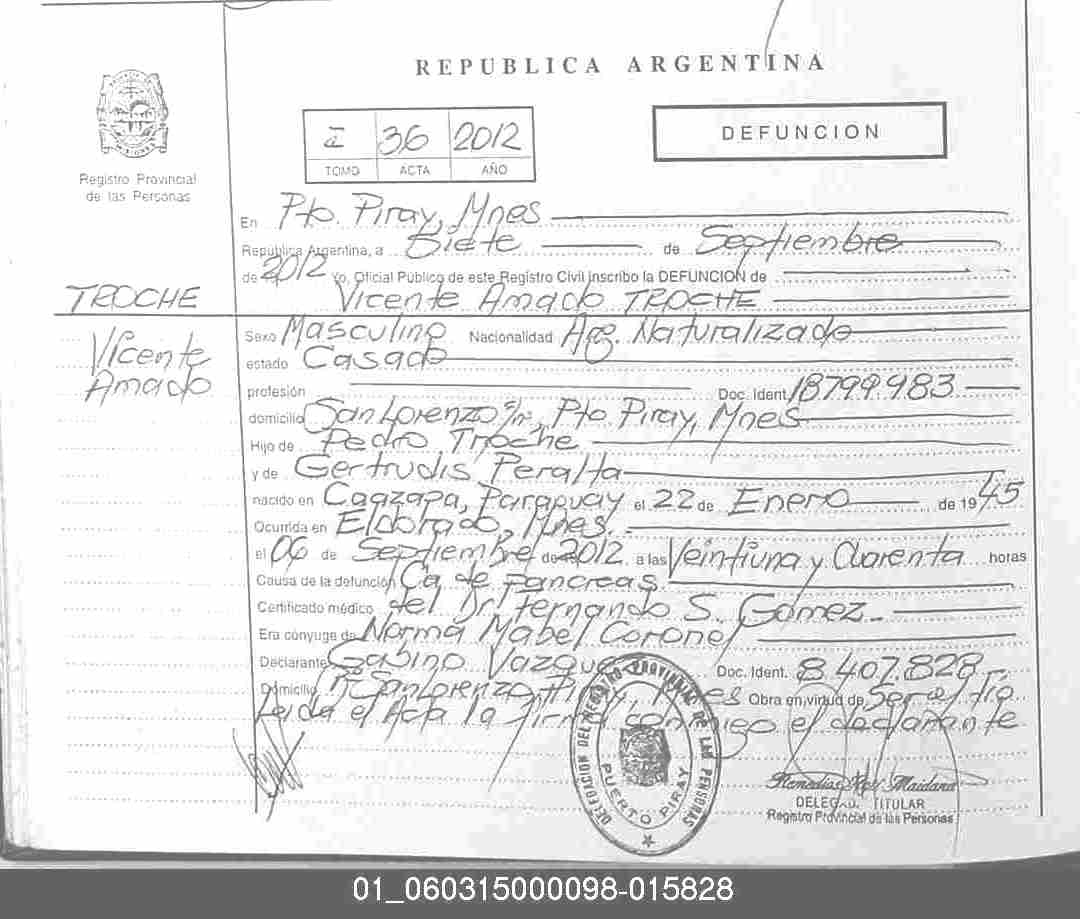 REPUBLICA ARGENTINA
36 2012
TOMO ACTA AÑO
DEFUNCION
Registro Provincial
de las Personas
En Pto. Piray, Mnes
Republica Argentina, a Siete de Septiembre
de 2012 Yo, Oficial Público de este Registro Civil inscribo la DEFUNCION de
TROCHE
Vicente Amado TROCHE
Vicente
Amado
Sexo Masculino Nacionalidad Arg. Naturalizado
estado Casado
profesión Doc. Ident. 18799.983
domicilio San Lorenzo s/nº, Pto. Piray, Mnes
Hijo de Pedro Troche
y de Gertrudis Peralta
nacido en Caazapa, Paraguay el 22 de Enero de 1945
Ocurrida en Eldorado, Mnes
el 06 de Septiembre de 2012 a las Veintiuna y Cuarenta horas
Causa de la defunción Ca de Pancreas
Certificado médico del Dr Fernando S. Gomez
Era cónyuge de Norma Mabel Coronel
Declarante Gabino Vazquez Doc. Ident. 8.407.828
Domicilio San Lorenzo Piray, Mnes Obra en virtud de Ser el Tío
Leida el Acta la firma conmigo el declarante
DELEGACION DEL REGISTRO PROVINCIAL DE LAS PERSONAS
PUERTO PIRAY
Remedius Maidana
DELEGADA TITULAR
Registro Provincial de las Personas
01_060315000098-015828